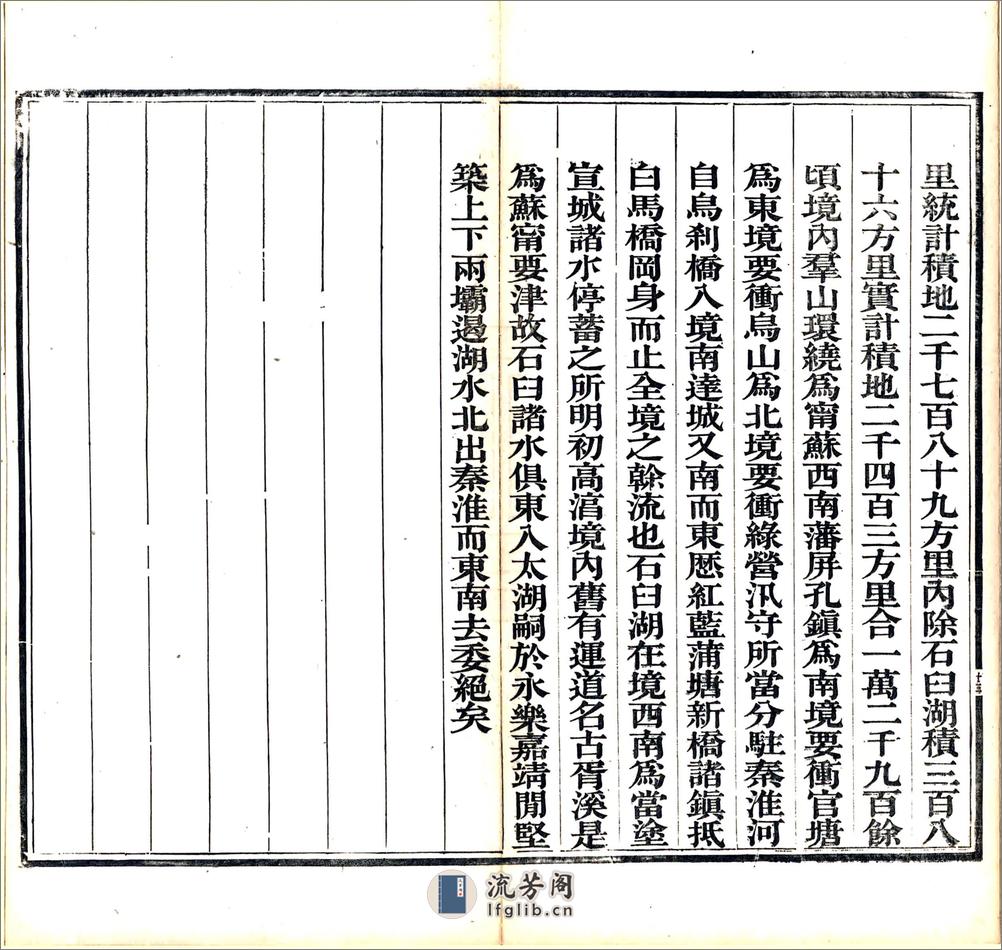 里統計積地二千七百八十九方里內除石臼湖積三百八
十六方里實計積地二千四百三方里合一萬二千九百餘
頃境內羣山環繞爲甯蘇西南藩屏孔鎮爲南境要衝官塘
爲東境要衝烏山爲北境要衝綠營汛守所當分駐秦淮河
自烏刹橋入境南達城又南而東歷紅藍蒲塘新橋諸鎮抵
白馬橋岡身而止全境之榦流也石臼湖在境西南爲當塗
宣城諸水停蓄之所明初高湻境內舊有運道名古胥溪是
爲蘇甯要津故石臼諸水俱東入太湖嗣於永樂嘉靖閒堅
築上下兩壩遏湖水北出秦淮而東南去委絕矣
流芳阁
lfglib.cn